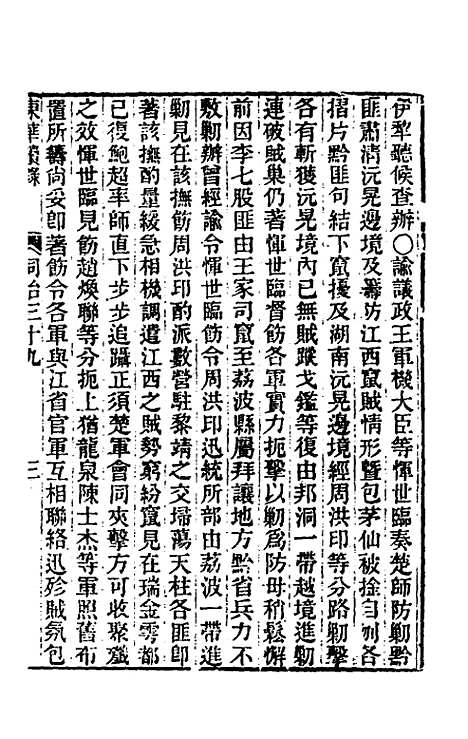 伊犂聽候查辦〇諭議政王軍機大臣等惲世臨奏楚師防勦黔
匪肅清沅晃邊境及籌防江西竄賊情形曁包茅仙被捦自刎各
摺片黔匪句結下竄擾及湖南沅晃邊境經周洪印等分路勦擊
各有斬獲沅晃境內已無賊蹤戈鑑等復由邦洞一帶越境進勦
連破賊巢仍著惲世臨督飭各軍實力扼擊以勦爲防毋稍鬆懈
前因李七股匪由王家司竄至荔波縣屬拜讓地方黔省兵力不
敷勦辦曾經諭令惲世臨飭令周洪印迅統所部由荔波一帶進
勦見在該撫飭周洪印酌派數營駐黎靖之交埽蕩天柱各匪卽
著該撫酌量緩急相機調遣江西之賊勢窮紛竄見在瑞金雩都
已復鮑超率師直下步步追躡正須楚軍會同夾擊方可收聚殲
之效惲世臨見飭趙煥聯等分扼上猶龍泉陳士杰等軍照舊布
置所籌尙妥卽著飭令各軍與江省官軍互相聯絡迅殄賊氛包
東華續錄 同治三十九 三